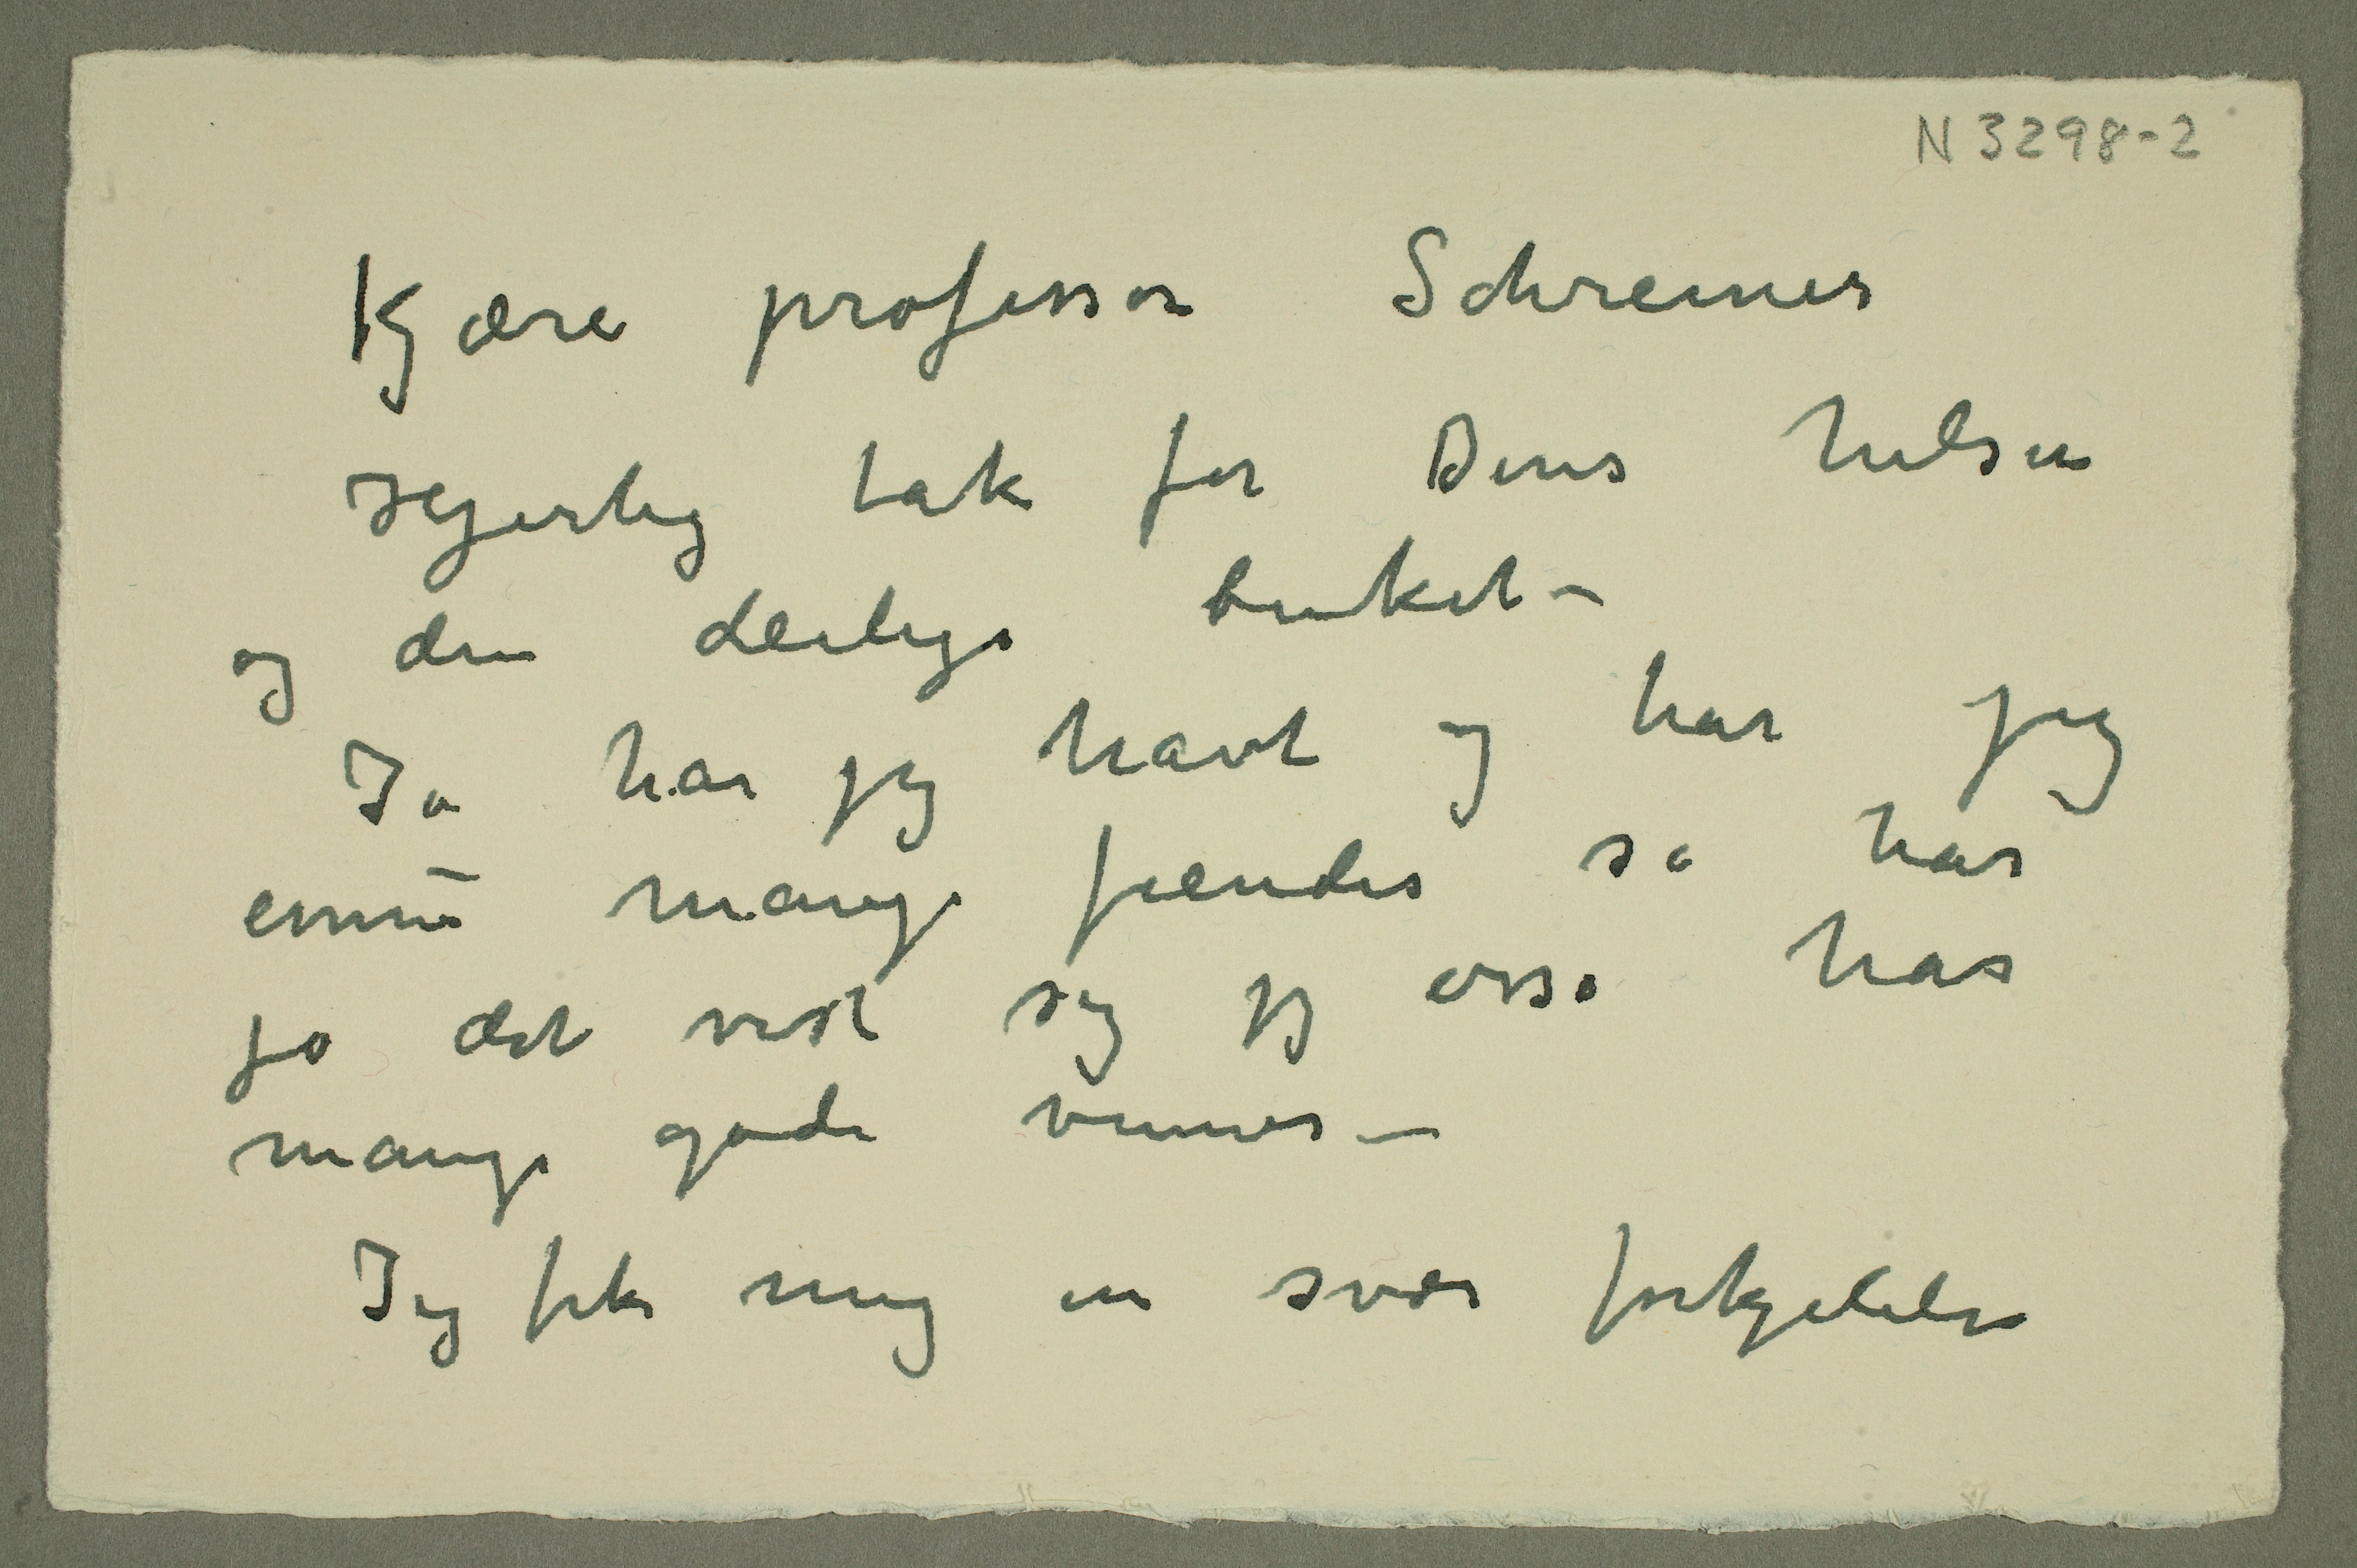 N 3298-2
Kjære professor Schreiner
Hjertlig tak for Deres hilsen
og den deilige buket –
Ja har jeg havt og har jeg
ennu mange fiender så har
jo det vist sig jeg osså har
mange gode venner –
Jeg fik mig en svær forkjølelse